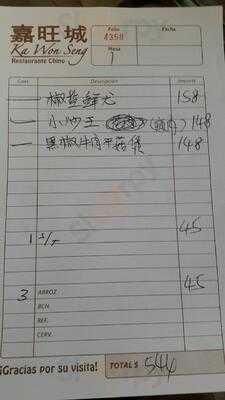 嘉旺城
Ka Won Seng
Restaurante Chino
Folio
4358
Fecha
Mesa
1
Cant.
Descripción
Importe
一 椒盐鲜尤 158
一 小炒王 148
一 黑椒牛肉 菇煲 148
1 S/T 45
3 ARROZ 45
BCN.
REF.
CERV.
¡Gracias por su visita!
TOTAL $ 544